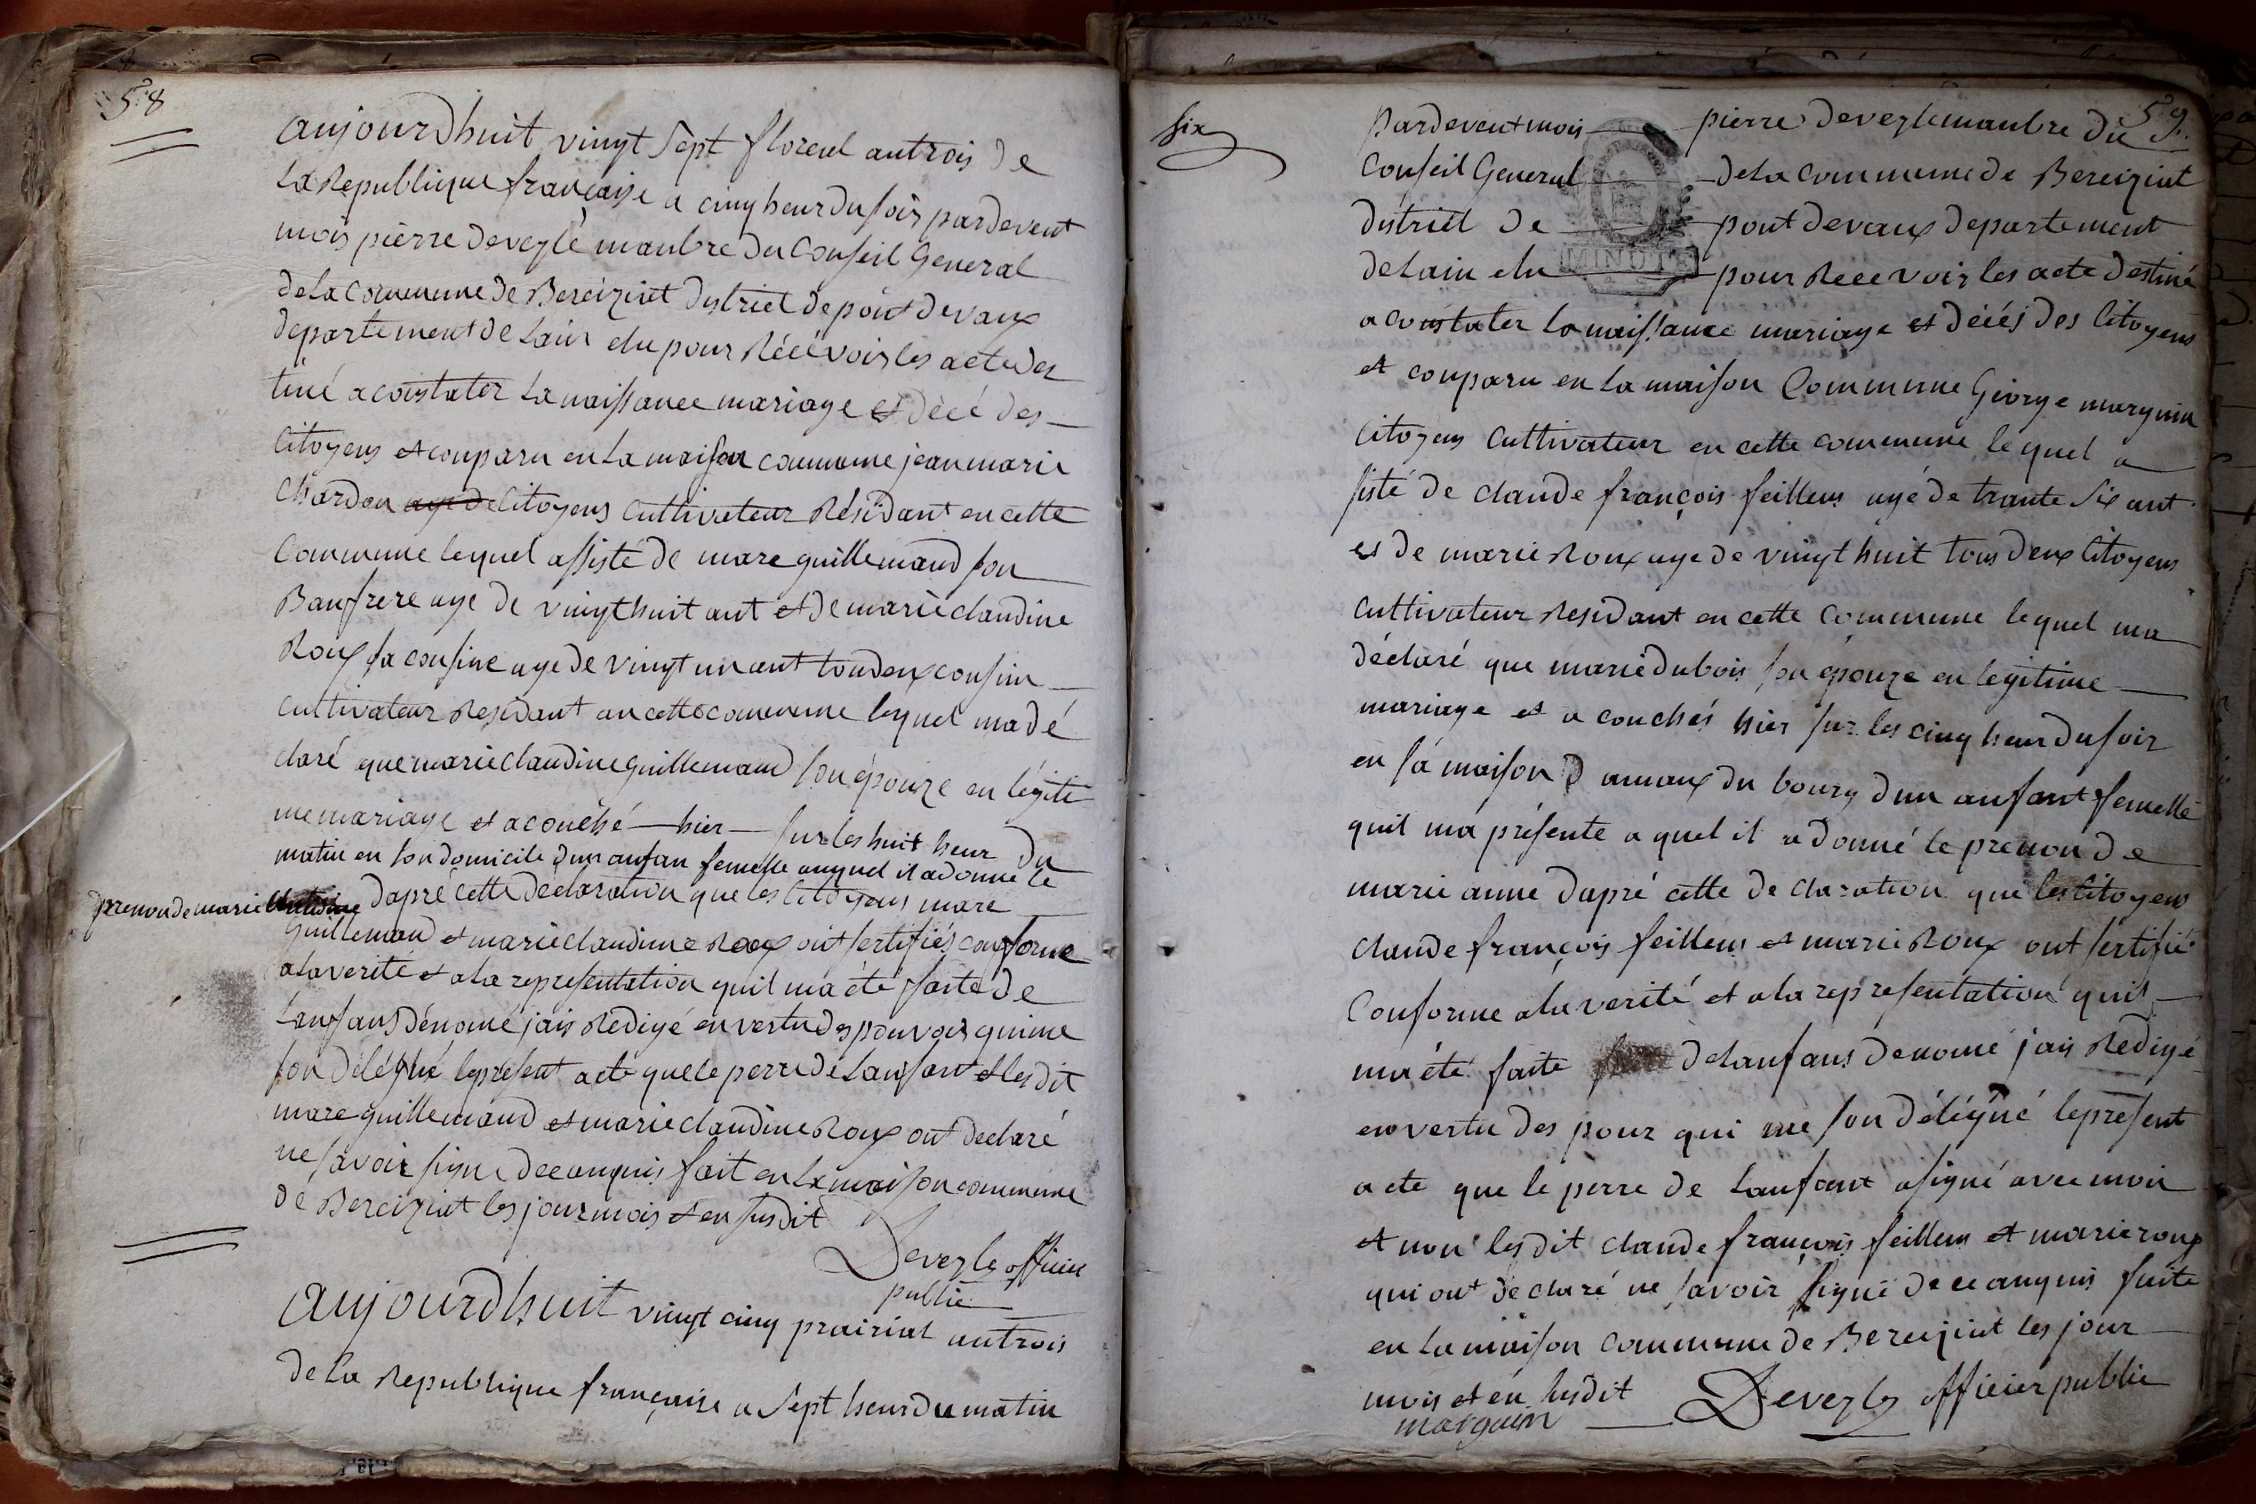 58
aujourdhuit vingt sept floreal antrois de
La Republique françaisse a cinq heur du soir pardevent
mois pierre deveylé manbre du Conseil General
de La Commune de Bereiziat district de pont devaux
departement de Lain elu pour Récévoir les acte des
tiné a constater La naissance mariage et décé des
Citoyens et conparu en La maison commune jean marie
Chardon aye de Citoyens Cultivateur Résidant en cette
Commune lequel assisté de marc guillemaud son
Baufrere aye de vingt huit ant et de marie claudine
Roux sa cousine aye de vingt un ant toudeux cousin
cultivateur Residant an cette commune lequel ma dé
claré que marie claudine guillemaud son épouze en légiti
me mariage et acouché hier sur les huit heur du
matin en son domicile dun anfan femelle auquel il a donné le
prenon de marie claudine dapré cette déclaration que les Citoyens marc
Guillemaud et marie claudinne Roux ont sertifiés conforme
a la verité et a la representation quil ma été faite de
Lanfans dénomé jais Rédigé en vertu des pouvoir qui me
son délégué le présent acte que le perre de Lanfant et les dit
marc guillemaud et marie claudine Roux ont declaré
ne savoir signe de ce anquis fait en La maison commune
de Bereiziat les jour mois et en susdit
Deveyle officier
public
aujourdhuit vingt cinq prairial antrois
de La Republique françaisse a sept heur du matin
59
six
pardevent mois pierre deveyle manbre du
Conseil General de La Commune de Bereiziat
district de pont devaux departement
de Lain elu pour Recevoir les acte destiné
MINUTE
a constater La naissance mariage et décés des Citoyens
et conparu en La maison Commune George marguin
Citoyens Cultivateur en cette commune lequel a
sisté de claude françois feillens ayé de trante six ant
et de marie Roux aye de vingt huit tous deux Citoyens
Cultivateur Residant en cette Commune lequel ma
déclaré que marie dubois son épouze en legitime
mariage et a couchés hier sur les cinq heur du soir
en sa maison d amaux du bourg dun anfant femelle
quil ma présente a quel il a donné le prenon de
marie anne dapré cette declaration que les Citoyens
claude françois feillens et marie Roux ont sertifié
Conforme a la verité et a la representation quil
ma été faite de Lanfans denomé jais Redigé
en vertu des pour qui me son délégué le présent
acte que le perre de Lanfant a signé avec moir
et non les dit claude françois feillens et marie roux
qui ont declaré ne savoir signé de ce anquis faite
en La maison Commune de Bereiziat les jour
mois et en susdit Deveyle officier public
marguin